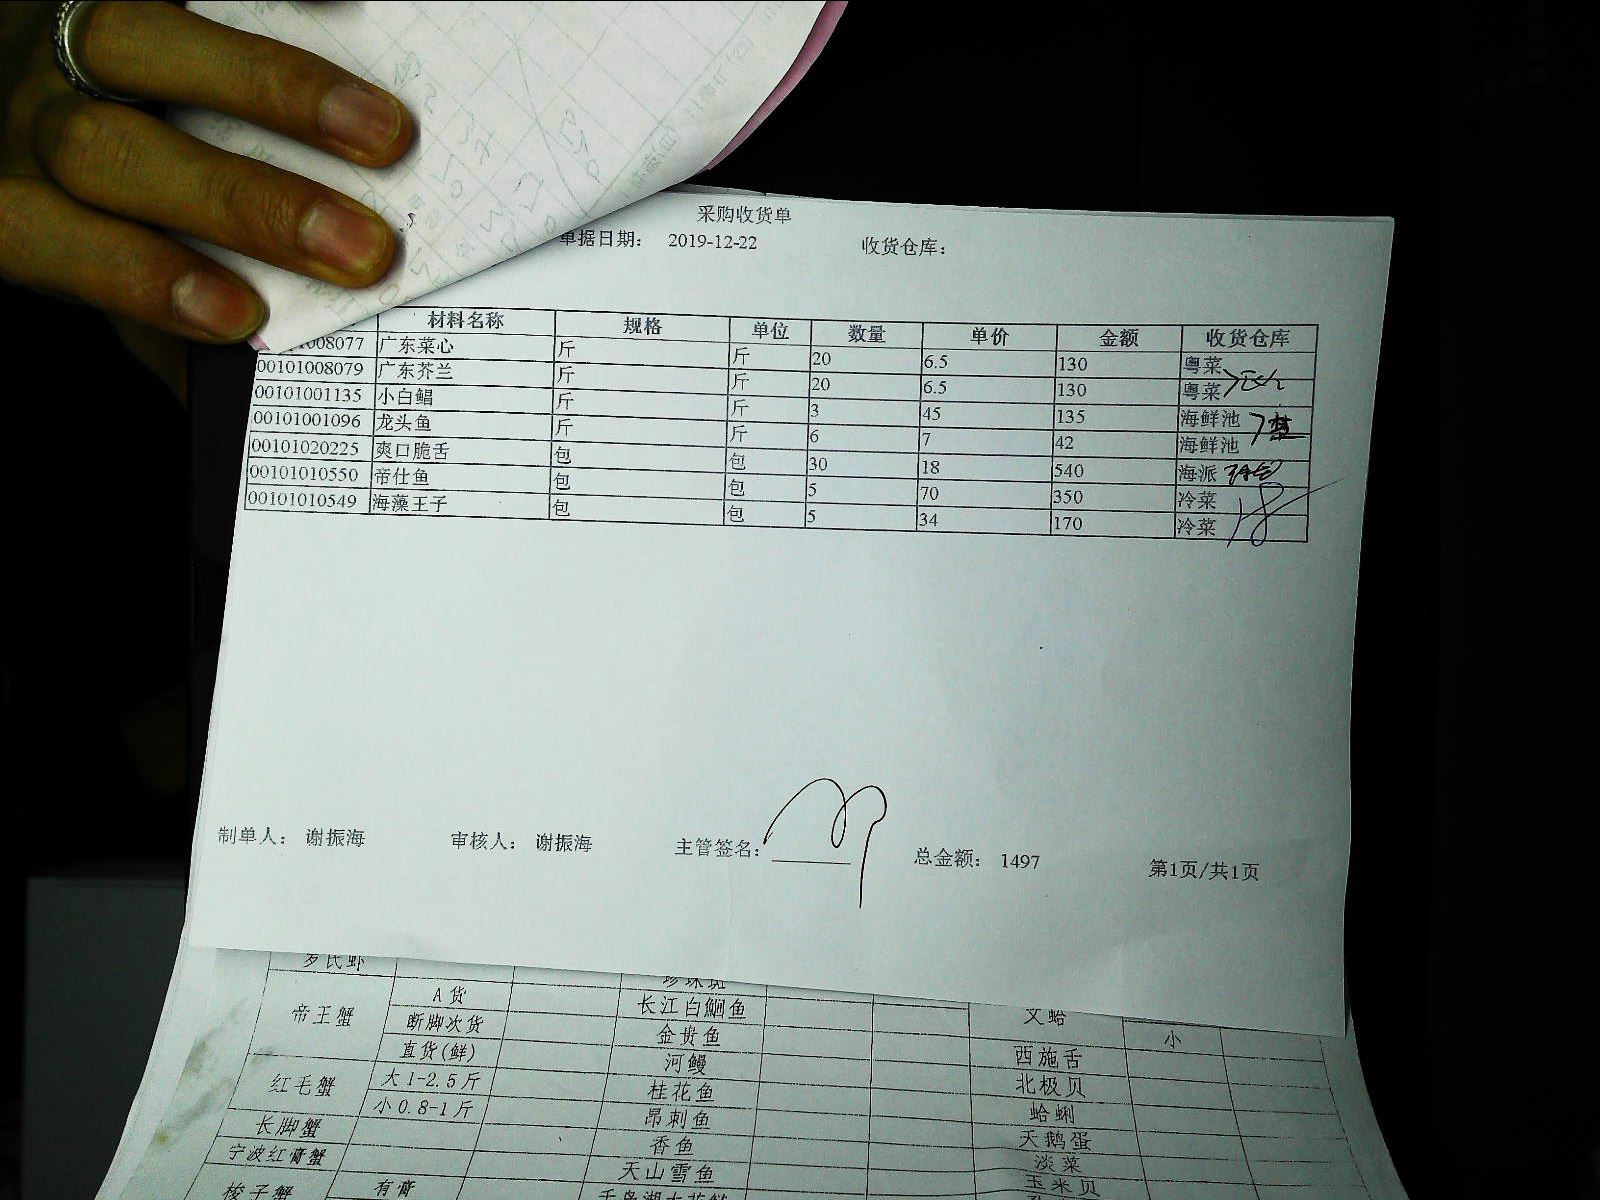 采购收货单
单据日期： 2019-12-22 收货仓库：
材料名称 规格 单位 数量 单价 金额 收货仓库
008077 广东菜心 斤 斤 20 6.5 130 粤菜
00101008079 广东芥兰 斤 斤 20 6.5 130 粤菜
00101001135 小白鲳 斤 斤 3 45 135 海鲜池
00101001096 龙头鱼 斤 斤 6 7 42 海鲜池
00101020225 爽口脆舌 包 包 30 18 540 海派
00101010550 帝仕鱼 包 包 5 70 350 冷菜
00101010549 海藻王子 包 包 5 34 170 冷菜
制单人： 谢振海 审核人： 谢振海 主管签名： 总金额： 1497 第1页/共1页
罗氏虾 珍珠斑
帝王蟹 A货 长江白鮰鱼 文蛤
断脚次货 金贵鱼 小
直货(鲜) 河鳗 西施舌
红毛蟹 大1-2.5斤 桂花鱼 北极贝
小0.8-1斤 昂刺鱼 蛤蜊
长脚蟹 香鱼 天鹅蛋
宁波红膏蟹 天山雪鱼 淡菜
梭子蟹 有膏 玉米贝